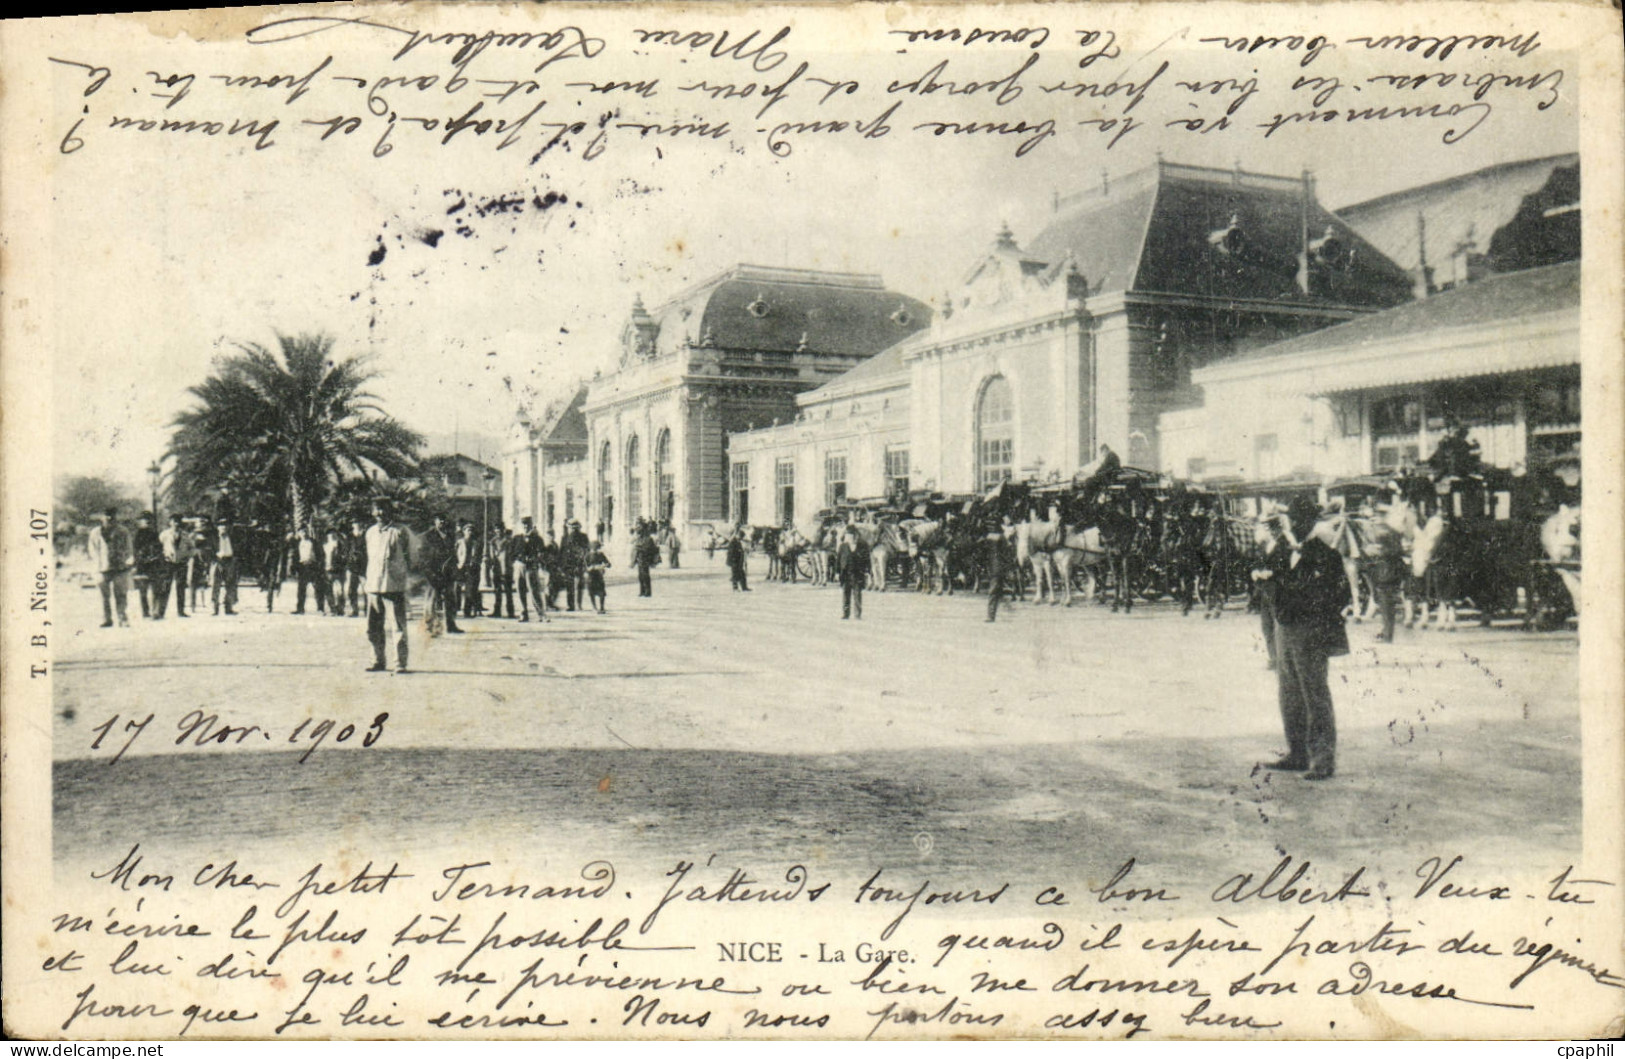 17 Nov. 1903
Mon cher petit Fernand. J'attends toujours ce bon Albert. Veux-tu
m'écrire le plus tôt possible quand il espère partir du régiment
NICE - La Gare.
et lui dire qu'il me prévienne ou bien me donner son adresse
pour que je lui écrive. Nous nous portons assez bien.
Comment va ta bonne grand-mère? et papa? et maman?
Embrasse-les bien pour Georges et pour moi et garde pour toi le
meilleur baiser. Ta cousine Marie Lambert
T. B, Nice. - 107
cpaphil